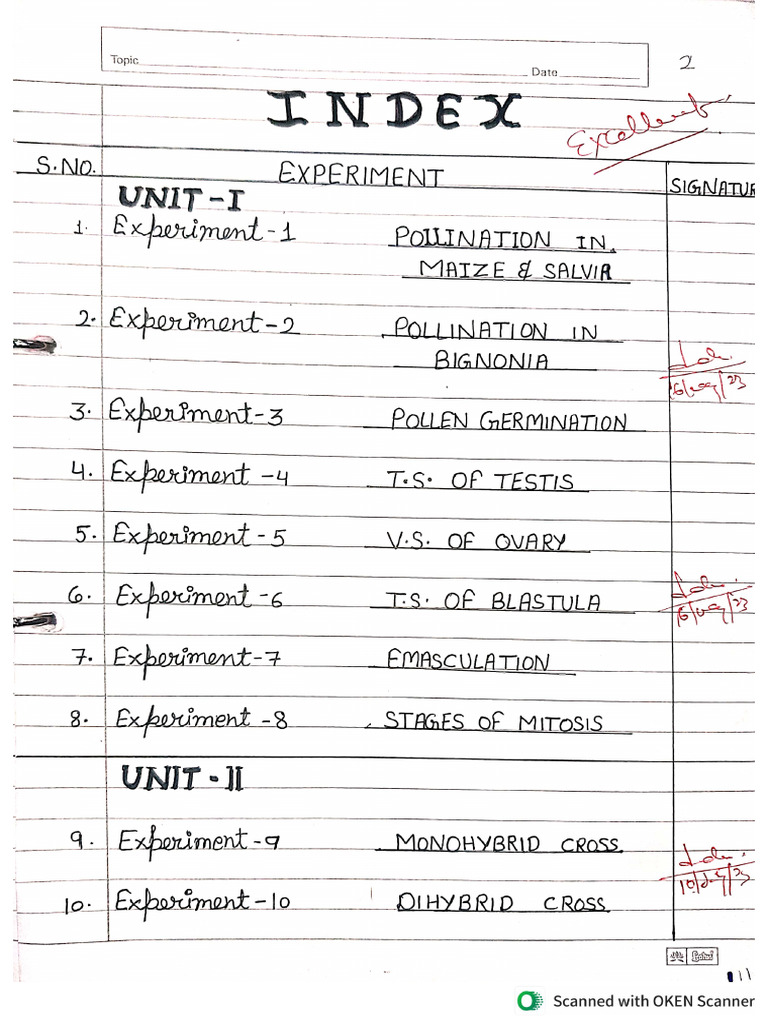 Topic Date
2
INDEX
Excellent
S.NO. EXPERIMENT SIGNATUR
UNIT-I
1. Experiment-1 POLLINATION IN
MAIZE & SALVIA
2. Experiment-2 POLLINATION IN
BIGNONIA
3. Experiment-3 POLLEN GERMINATION
4. Experiment-4 T.S. OF TESTIS
5. Experiment-5 V.S. OF OVARY
6. Experiment-6 T.S. OF BLASTULA
7. Experiment-7 EMASCULATION
8. Experiment-8 STAGES OF MITOSIS
UNIT-II
9. Experiment-9 MONOHYBRID CROSS
10. Experiment-10 DIHYBRID CROSS
Scanned with OKEN Scanner